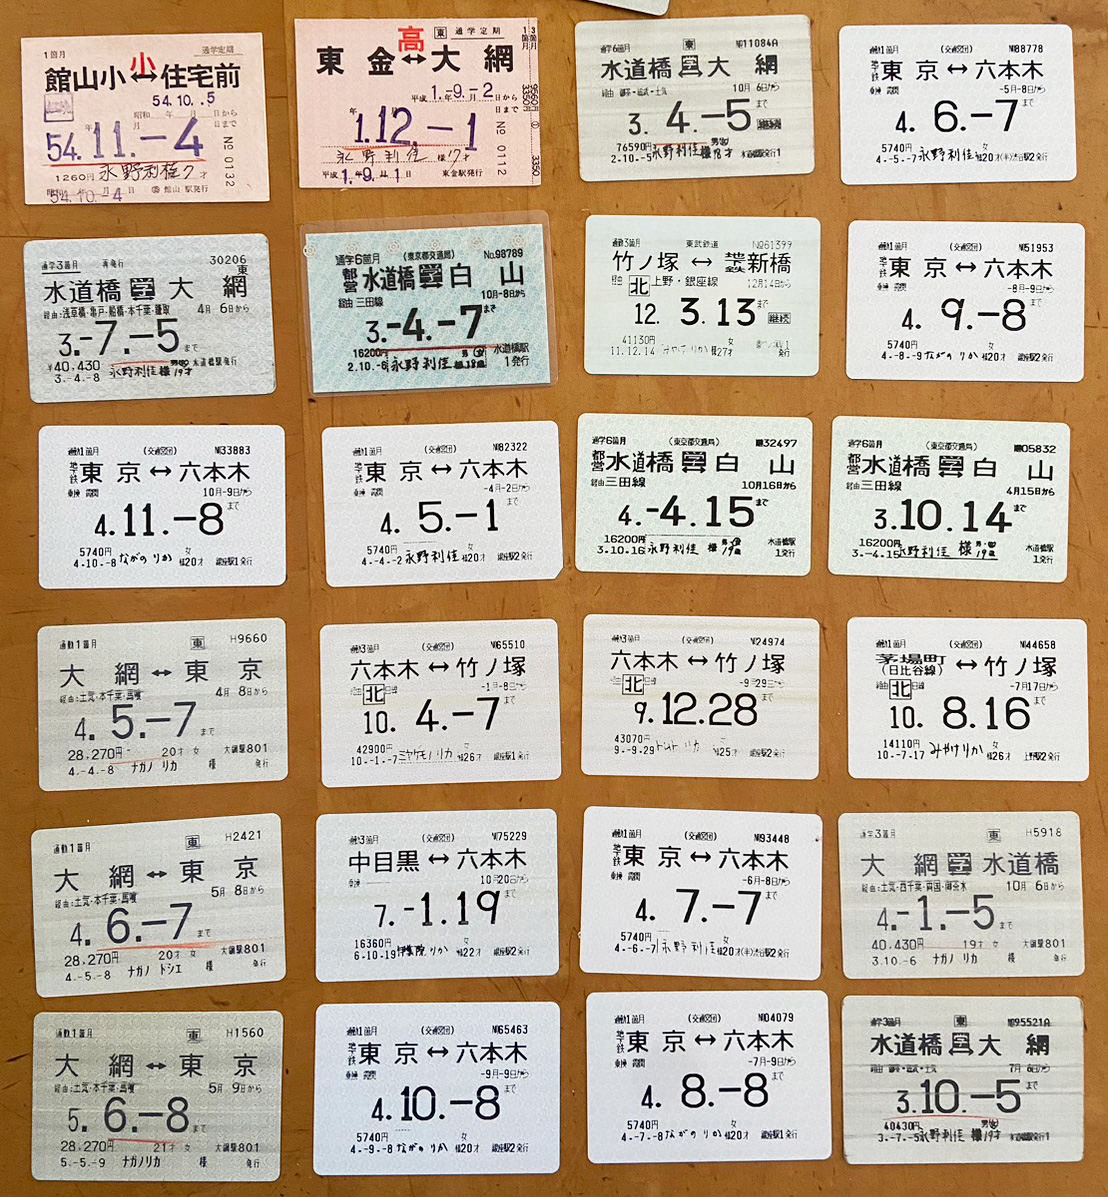 1箇月 通学定期
小
館山小 ↔ 住宅前
54.10.-5
昭和 年 月 日から
年 月 日まで
54.11.-4
1260円 永野利佳 7才
54.10.-4
館山 駅発行
No 0132
高 東 通学定期
東金 ↔ 大網
平成 1.-9.-2 日から
日まで
1.12.-1
永野利佳 様17才
平成 1.-9.-1 日 東金駅発行
No 0112
通学6箇月 東 №11084A
水道橋 学 大網
10月 6日から
3.-4.-5 まで 継続
76590円
2.10.-5 永野利佳 様18才 水道橋駅発行1
通勤1箇月 (交通営団) №88778
地下鉄 東京 ↔ 六本木
-5月-8日から
4.-6.-7 まで
5740円 女
4.-5.-7 永野利佳 様20才
通学3箇月 再発行 30206
水道橋 学 大網 東
経由:浅草橋・亀戸・船橋・本千葉・鎌取 4月 6日から
3.-7.-5 まで
¥40,430
3.-4.-8 永野利佳 様19才 水道橋駅発行
通学6箇月 (東京都交通局) No.98789
都営 水道橋 学 白山
経由 三田線 10月-8日から
3.-4.-7 まで
16200円 水道橋駅
2.10.-6 永野利佳 様18歳 1発行
通勤3箇月 東武鉄道 №61399
竹ノ塚 ↔ 新橋
経由 北 上野・銀座線 12月14日から
12. 3.13 まで 継続
41130円 女
11.12.14 様27才 発行
通勤1箇月 (交通営団) №51953
地下鉄 東京 ↔ 六本木
-8月-9日から
4. 9.-8 まで
5740円 女
4.-8.-9 ながの りか 様20才 銀座駅2発行
通勤1箇月 (交通営団) №33883
地下鉄 東京 ↔ 六本木
10月-9日から
4.11.-8 まで
5740円 女
4.10.-8 ながの りか 様20才 銀座駅2発行
通勤1箇月 (交通営団) №82322
地下鉄 東京 ↔ 六本木
-4月-2日から
4. 5.-1 まで
5740円 女
4.-4.-2 永野利佳 様20才 銀座駅2発行
通学6箇月 (東京都交通局) 32497
都営 水道橋 学 白山
経由 三田線 10月16日から
4.-4.15 まで
16200円 水道橋駅
3.10.16 永野利佳 様19歳 1発行
通学6箇月 (東京都交通局) 05832
都営 水道橋 学 白山
経由 三田線 4月15日から
3.10.14 まで
16200円 水道橋駅
3.-4.15 永野利佳 様18歳 1発行
通勤1箇月 東 H9660
大網 ↔ 東京
経由:土気・本千葉・馬喰 4月 8日から
4. 5.-7 まで
28,270円 20才 女 大網駅801
4.-4.-8 ナガノ リカ 様 発行
通勤3箇月 (交通営団) №65510
六本木 ↔ 竹ノ塚
経由 北 -1月-8日から
10. 4.-7 まで
42900円 女
10.-1.-7 ミヤケモノ リカ 様26才 銀座駅1発行
通勤3箇月 (交通営団) №24974
六本木 ↔ 竹ノ塚
経由 北 -9月29日から
9.12.28 まで
43070円
9.-9.29 様25才 銀座駅2発行
通勤1箇月 (交通営団) №44658
茅場町(日比谷線) ↔ 竹ノ塚
経由 北 -7月17日から
10. 8.16 まで
14110円 女
10.-7.17 みやけ りか 様26才 上野駅2発行
通勤1箇月 東 H2421
大網 ↔ 東京
経由:土気・本千葉・馬喰 5月 8日から
4. 6.-7 まで
28,270円 20才 女 大網駅801
4.-5.-8 ナガノ トシエ 様 発行
通勤3箇月 (交通営団) №75229
中目黒 ↔ 六本木
10月20日から
7.-1.19 まで
16360円 女
6.10.19 りか 様22才 銀座駅2発行
通勤1箇月 (交通営団) №93448
地下鉄 東京 ↔ 六本木
-6月-8日から
4. 7.-7 まで
5740円 女
4.-6.-7 永野利佳 様20才
通学3箇月 東 H5918
大網 学 水道橋
経由:土気・西千葉・両国・御茶水 10月 6日から
4.-1.-5 まで
40,430円 19才 女 大網駅801
3.10.-6 ナガノ リカ 様 発行
通勤1箇月 東 H1560
大網 ↔ 東京
経由:土気・本千葉・馬喰 5月 9日から
5. 6.-8 まで
28,270円 21才 女 大網駅801
5.-5.-9 ナガノリカ 様 発行
通勤1箇月 (交通営団) №65463
地下鉄 東京 ↔ 六本木
-9月-9日から
4.10.-8 まで
5740円 女
4.-9.-8 ながの りか 様20才 銀座駅2発行
通勤1箇月 (交通営団) №04079
地下鉄 東京 ↔ 六本木
-7月-9日から
4. 8.-8 まで
5740円 女
4.-7.-8 ながの りか 様20才 銀座駅1発行
通学3箇月 東 №95521A
水道橋 学 大網
7月 6日から
3.10.-5 まで
40430円
3.-7.-5 永野利佳 様19才 水道橋駅発行1